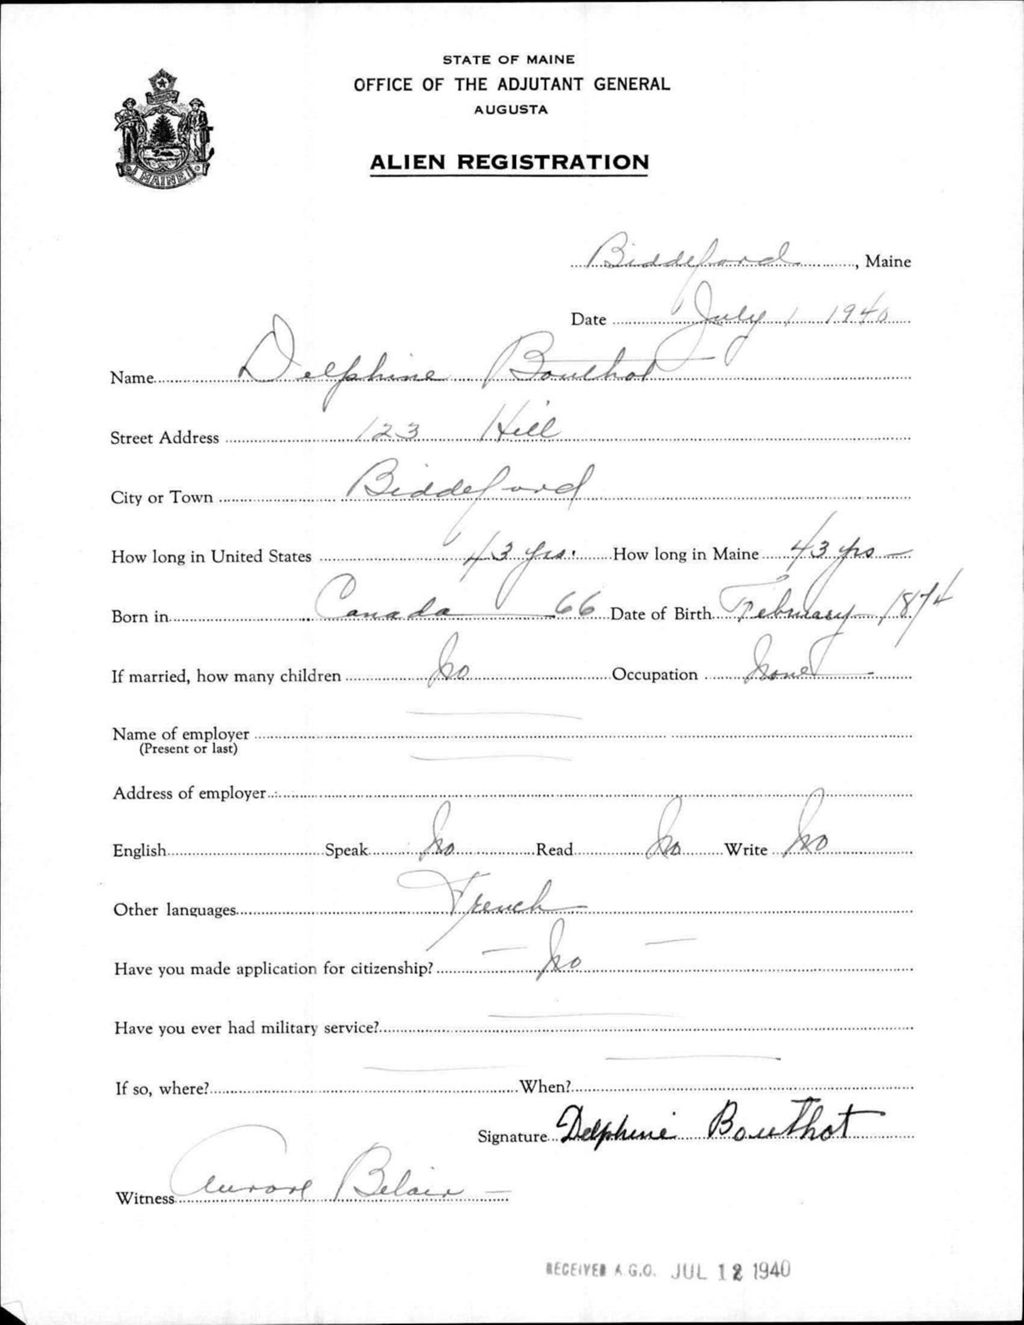 STATE OF MAINE
OFFICE OF THE ADJUTANT GENERAL
AUGUSTA
ALIEN REGISTRATION
MAINE
Biddeford, Maine
Date July 1 1940
Name Delphine Bouthot
Street Address 123 Hill
City or Town Biddeford
How long in United States 43 yrs. How long in Maine 43 yrs
Born in Canada 66 Date of Birth February 1874
If married, how many children No Occupation None
Name of employer
(Present or last)
Address of employer
English Speak No Read No Write No
Other languages French
Have you made application for citizenship? No
Have you ever had military service?
If so, where? When?
Signature Delphine Bouthot
Witness Aurore Belair
RECEIVED A.G.O. JUL 12 1940